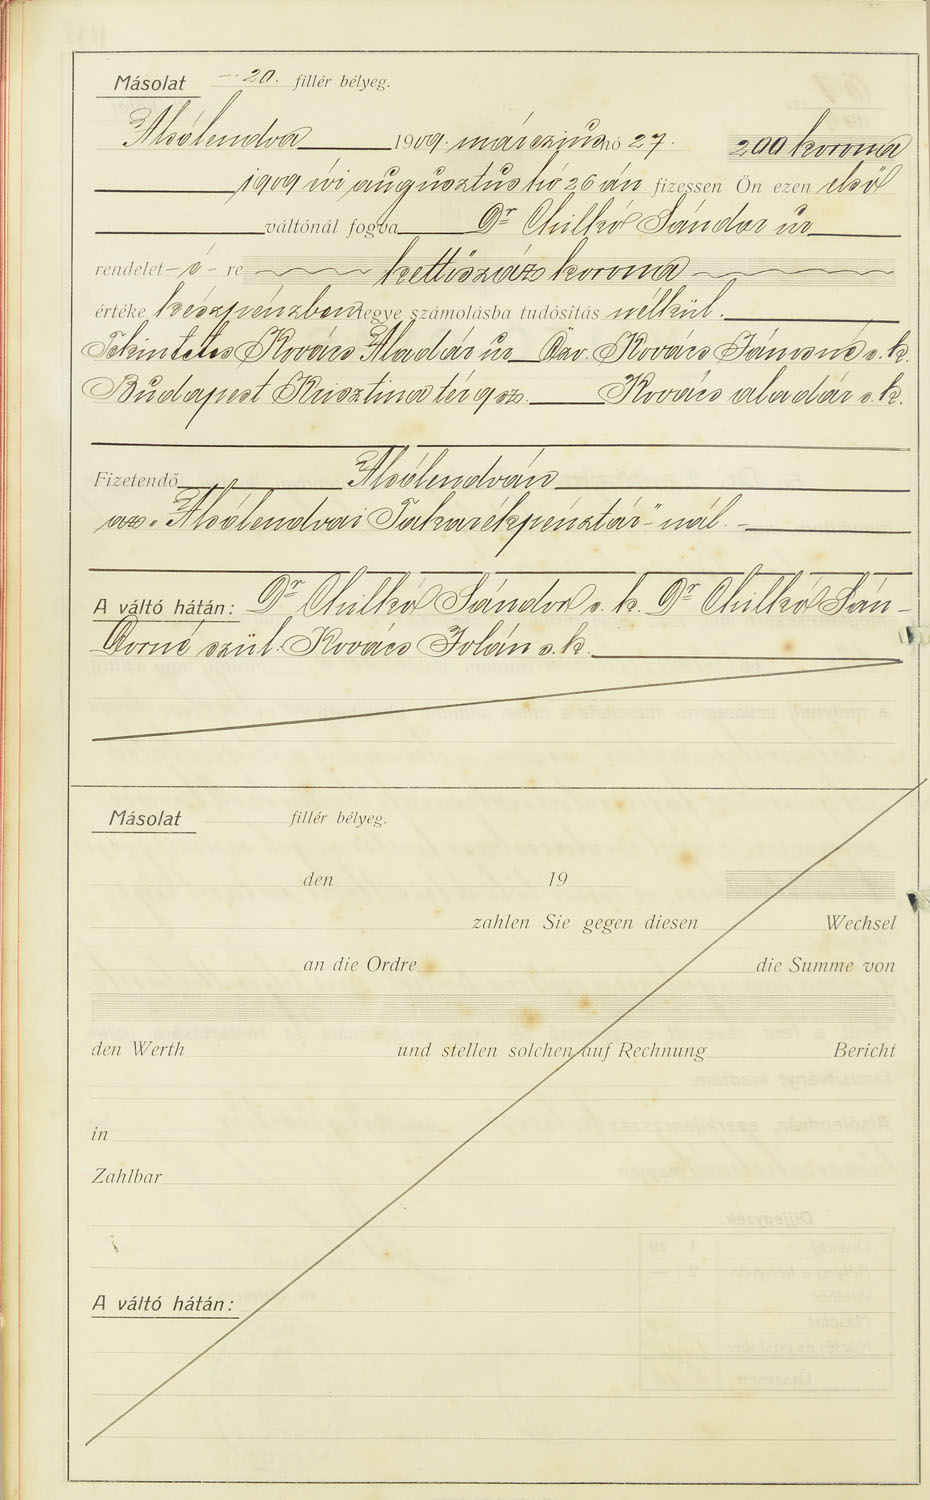 Másolat -.20. fillér bélyeg.
Alsólendva 1909. márczius hó 27. 200 korona
1909 évi augusztus hó 26 án fizessen Ön ezen első
váltónál fogva Dr Chilkó Sándor úr
rendelet-é-re kettőszáz korona
értéke készpénzben tegye számolásba tudósítás nélkül.
Tekintetes Kovács Aladár úr Özv. Kovács Jánosné s.k.
Budapest Krisztina tér 9 sz. Kovács aladár s.k.
Fizetendő Alsólendván
az „Alsólendvai Takarékpénztár"nál.-
A váltó hátán: Dr Chilkó Sándor s.k. Dr Chilkó Sán-
dorné szül. Kovács Jolán s.k.
Másolat fillér bélyeg.
den 19
zahlen Sie gegen diesen Wechsel
an die Ordre die Summe von
den Werth und stellen solchen auf Rechnung Bericht
in
Zahlbar
A váltó hátán: